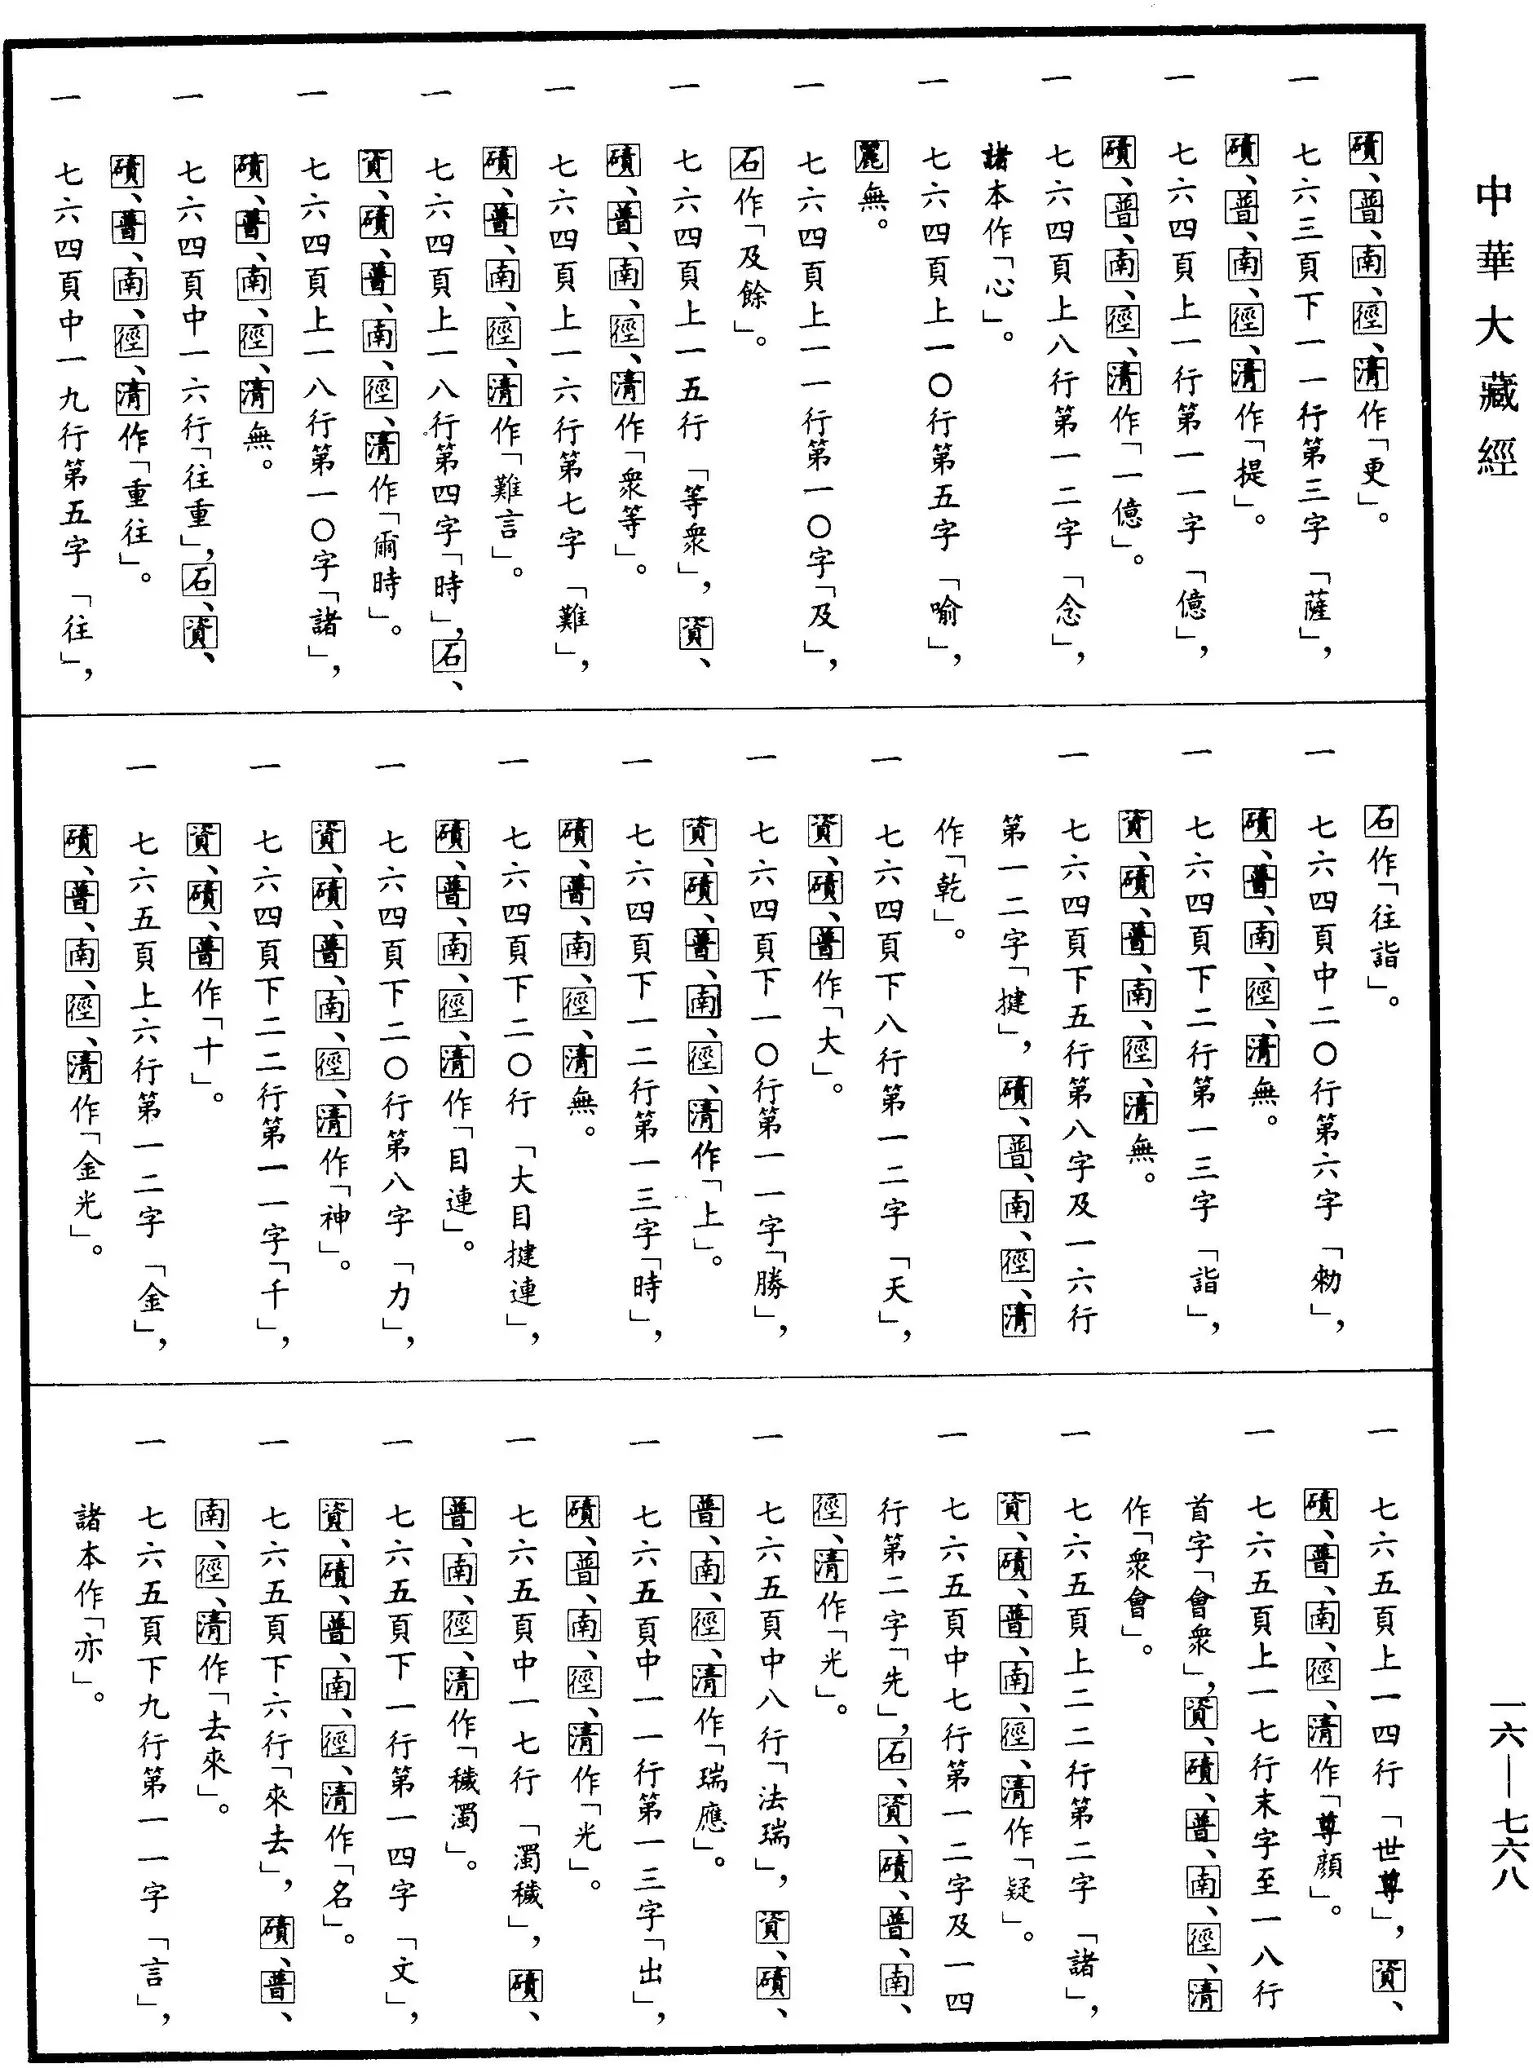 中華大藏經
一六—七六八
磧、普、南、徑、清作「更」。
一 七六三頁下一一行第三字「薩」，
磧、普、南、徑、清作「提」。
一 七六四頁上一行第一一字「億」，
磧、普、南、徑、清作「一億」。
一 七六四頁上八行第一二字「念」，
諸本作「心」。
一 七六四頁上一〇行第五字「喻」，
麗無。
一 七六四頁上一一行第一〇字「及」，
石作「及餘」。
一 七六四頁上一五行「等衆」，資、
磧、普、南、徑、清作「衆等」。
一 七六四頁上一六行第七字「難」，
磧、普、南、徑、清作「難言」。
一 七六四頁上一八行第四字「時」，石、
資、磧、普、南、徑、清作「爾時」。
一 七六四頁上一八行第一〇字「諸」，
磧、普、南、徑、清無。
一 七六四頁中一六行「往重」，石、資、
磧、普、南、徑、清作「重往」。
一 七六四頁中一九行第五字「往」，
石作「往詣」。
一 七六四頁中二〇行第六字「勑」，
磧、普、南、徑、清無。
一 七六四頁下二行第一三字「詣」，
資、磧、普、南、徑、清無。
一 七六四頁下五行第八字及一六行
第一二字「揵」，磧、普、南、徑、清
作「乾」。
一 七六四頁下八行第一二字「天」，
資、磧、普作「大」。
一 七六四頁下一〇行第一一字「勝」，
資、磧、普、南、徑、清作「上」。
一 七六四頁下一二行第一三字「時」，
磧、普、南、徑、清無。
一 七六四頁下二〇行「大目揵連」，
磧、普、南、徑、清作「目連」。
一 七六四頁下二〇行第八字「力」，
資、磧、普、南、徑、清作「神」。
一 七六四頁下二二行第一一字「千」，
資、磧、普作「十」。
一 七六五頁上六行第一二字「金」，
磧、普、南、徑、清作「金光」。
一 七六五頁上一四行「世尊」，資、
磧、普、南、徑、清作「尊顔」。
一 七六五頁上一七行末字至一八行
首字「會衆」，資、磧、普、南、徑、清
作「衆會」。
一 七六五頁上二二行第二字「諸」，
資、磧、普、南、徑、清作「疑」。
一 七六五頁中七行第一二字及一四
行第二字「先」，石、資、磧、普、南、
徑、清作「光」。
一 七六五頁中八行「法瑞」，資、磧、
普、南、徑、清作「瑞應」。
一 七六五頁中一一行第一三字「出」，
磧、普、南、徑、清作「光」。
一 七六五頁中一七行「濁穢」，磧、
普、南、徑、清作「穢濁」。
一 七六五頁下一行第一四字「文」，
資、磧、普、南、徑、清作「名」。
一 七六五頁下六行「來去」，磧、普、
南、徑、清作「去來」。
一 七六五頁下九行第一一字「言」，
諸本作「亦」。